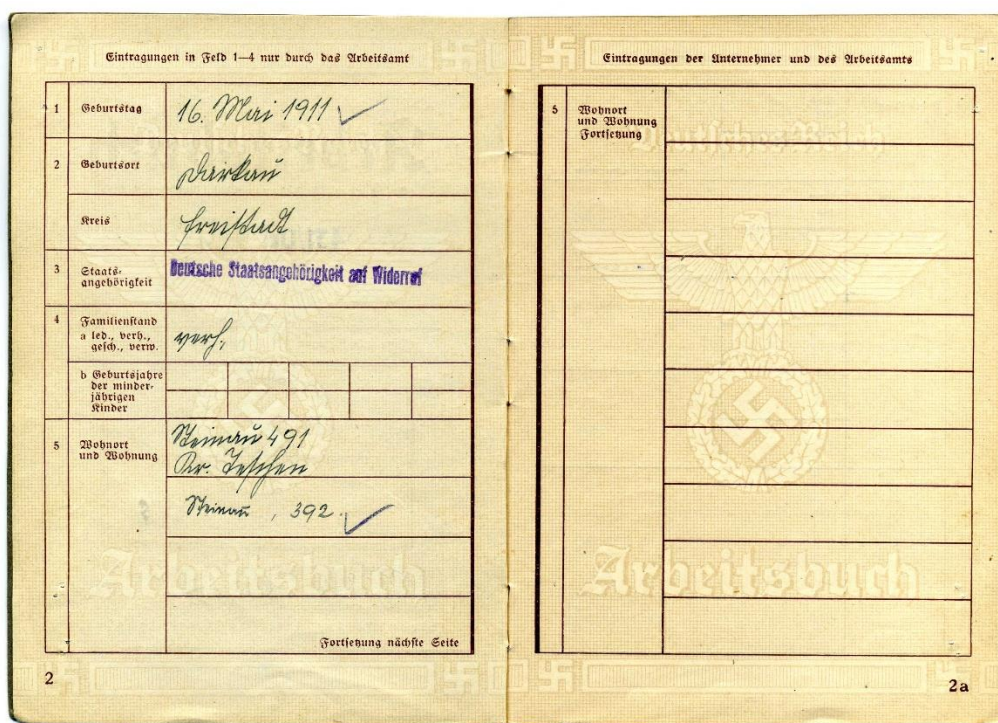 Eintragungen in Feld 1—4 nur durch das Arbeitsamt
1 Geburtstag 16. Mai 1911
2 Geburtsort Darkau
Kreis Freistadt
3 Staats-
angehörigkeit
Deutsche Staatsangehörigkeit auf Widerruf
4 Familienstand
a led., verh.,
gesch., verw.
verh.
b Geburtsjahre
der minder-
jährigen
Kinder
5 Wohnort
und Wohnung
Steinau 491
Kr. Teschen
Steinau, 392
Arbeitsbuch
Fortsetzung nächste Seite
2
Eintragungen der Unternehmer und des Arbeitsamts
5 Wohnort
und Wohnung
Fortsetzung
Deutsches Reich
Arbeitsbuch
2a